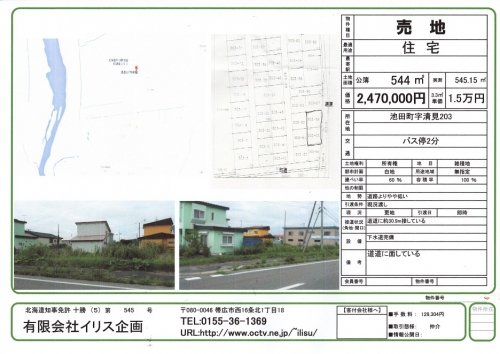 物件種目 売地
最適用途 住宅
最寄駅
土地面積 公簿 544 ㎡ 実測 545.15 ㎡
価格 2,470,000円 3.3㎡単価 1.5万円
所在地 池田町字清見203
交通 バス停2分
土地権利 所有権 地目 雑種地
都市計画 白地 用途地域 無指定
建ぺい率 60 % 容積率 100 %
他の制限
地勢 道路よりやや低い
引渡条件 現況渡し
現況 更地 引渡日 即時
接道状況(角地・間口) 道道に約30.9m接している
設備 下水道完備
備考 道道に面している
会員番号 物件番号
道道
町道
北海道知事免許 十勝 (5) 第 545 号
有限会社イリス企画
〒080-0046 帯広市西16条北1丁目18
TEL:0155-36-1369
URL:http://www.octv.ne.jp/~ilisu/
【客付会社様へ】
■手数料: 129,304円
■取引態様: 仲介
■情報公開日:
物件番号
物件所在